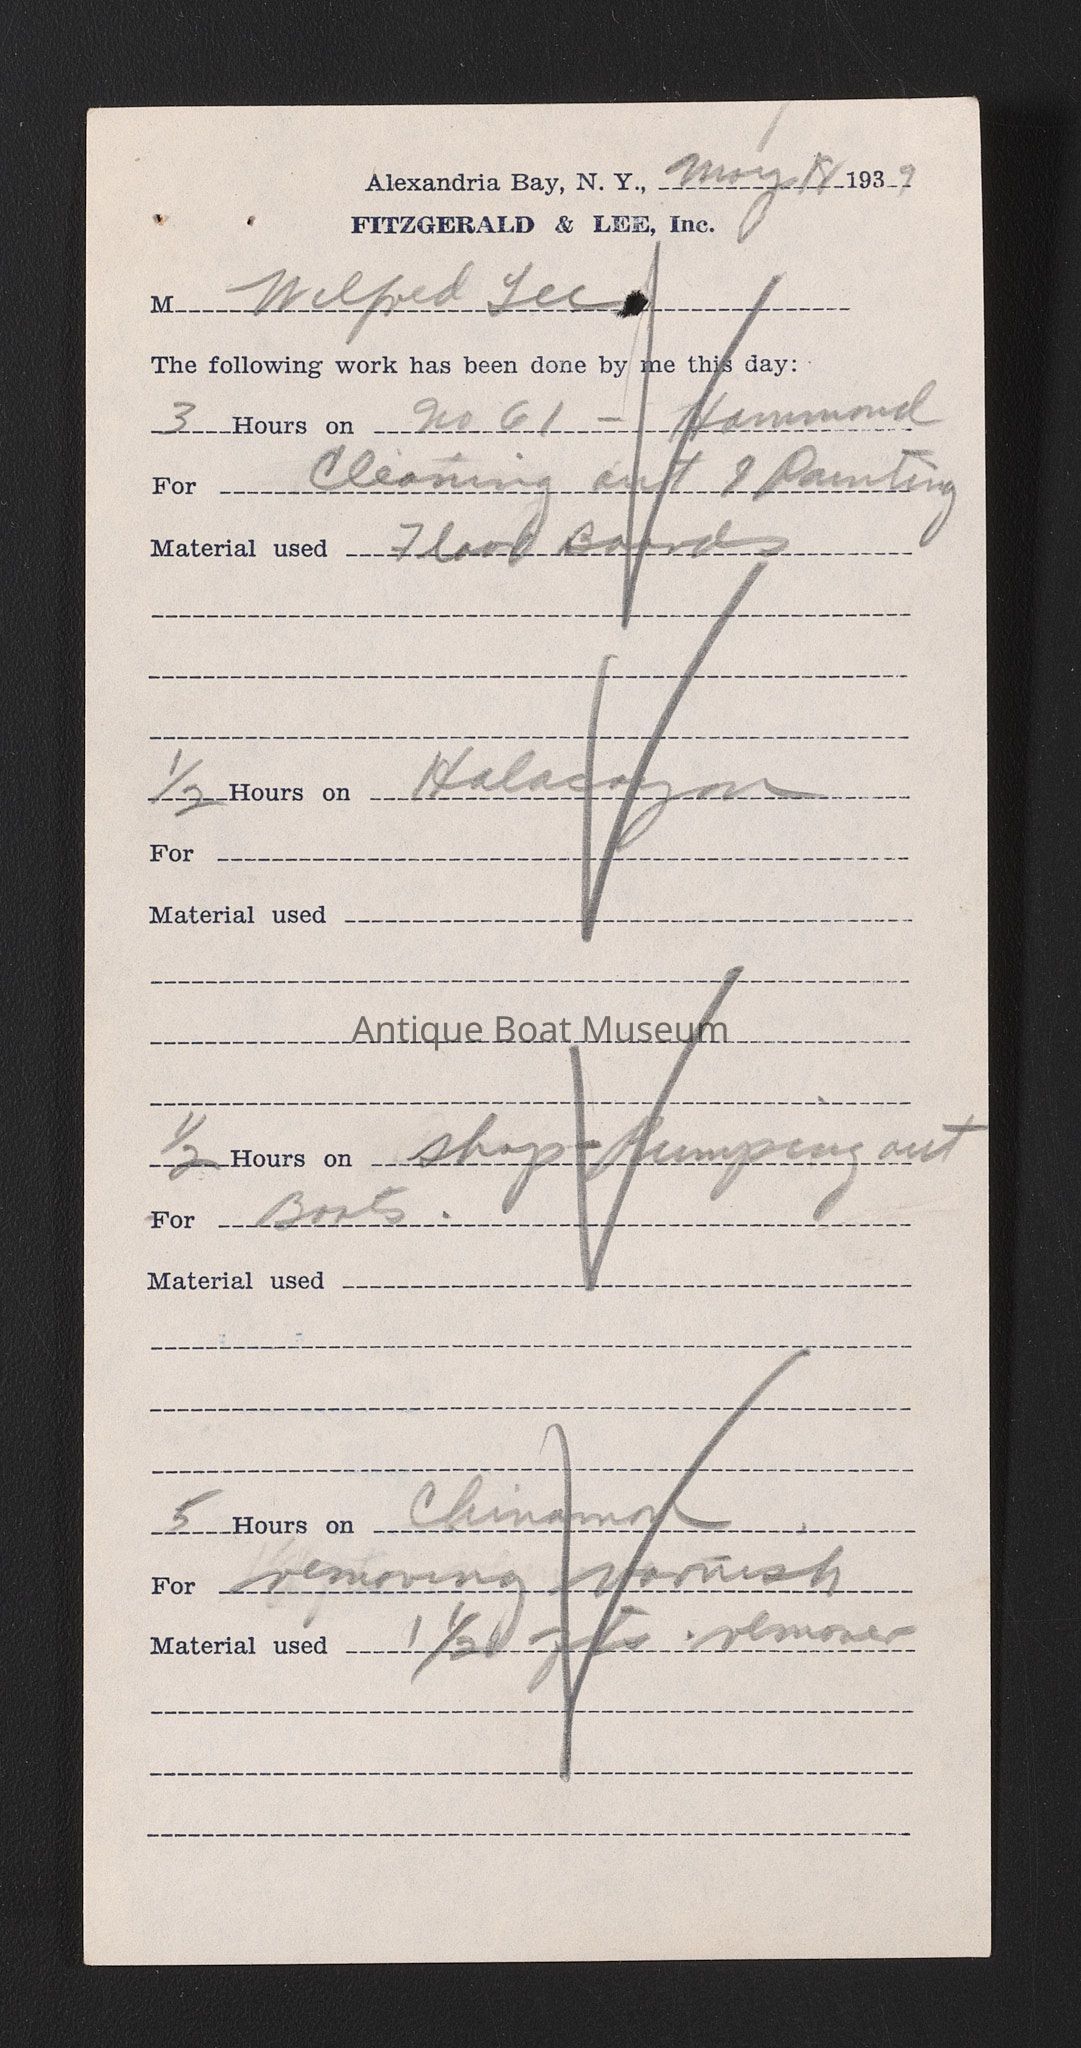 Alexandria Bay, N. Y., May 18 1939
FITZGERALD & LEE, Inc.
M Wilfred Lee
The following work has been done by me this day:
3 Hours on No 61 - Hammond
For Cleaning out & Painting
Material used Floor Boards
1/2 Hours on Halacoyon
For
Material used
Antique Boat Museum
1/2 Hours on shop - pumping out
For Boats.
Material used
5 Hours on Chinamon
For removing varnish
Material used 1 1/2 qts. remover